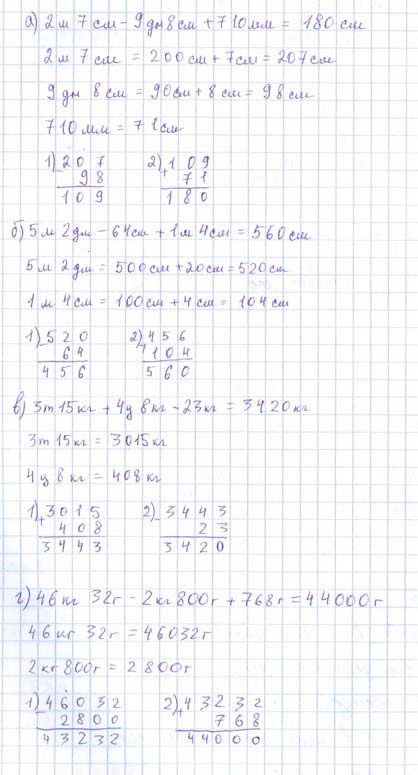 а) 2 м 7 см - 9 дм 8 см + 710 мм = 180 см
2 м 7 см = 200 см + 7 см = 207 см
9 дм 8 см = 90 см + 8 см = 98 см
710 мм = 71 см
1) 207 2) 109
- 98 + 71
109 180
б) 5 м 2 дм - 64 см + 1 м 4 см = 560 см
5 м 2 дм = 500 см + 20 см = 520 см
1 м 4 см = 100 см + 4 см = 104 см
1) 520 2) 456
- 64 + 104
456 560
в) 3 т 15 кг + 4 ц 8 кг - 23 кг = 3420 кг
3 т 15 кг = 3015 кг
4 ц 8 кг = 408 кг
1) 3015 2) 3443
+ 408 - 23
3443 3420
г) 46 кг 32 г - 2 кг 800 г + 768 г = 44000 г
46 кг 32 г = 46032 г
2 кг 800 г = 2800 г
1) 46032 2) 43232
- 2800 + 768
43232 44000